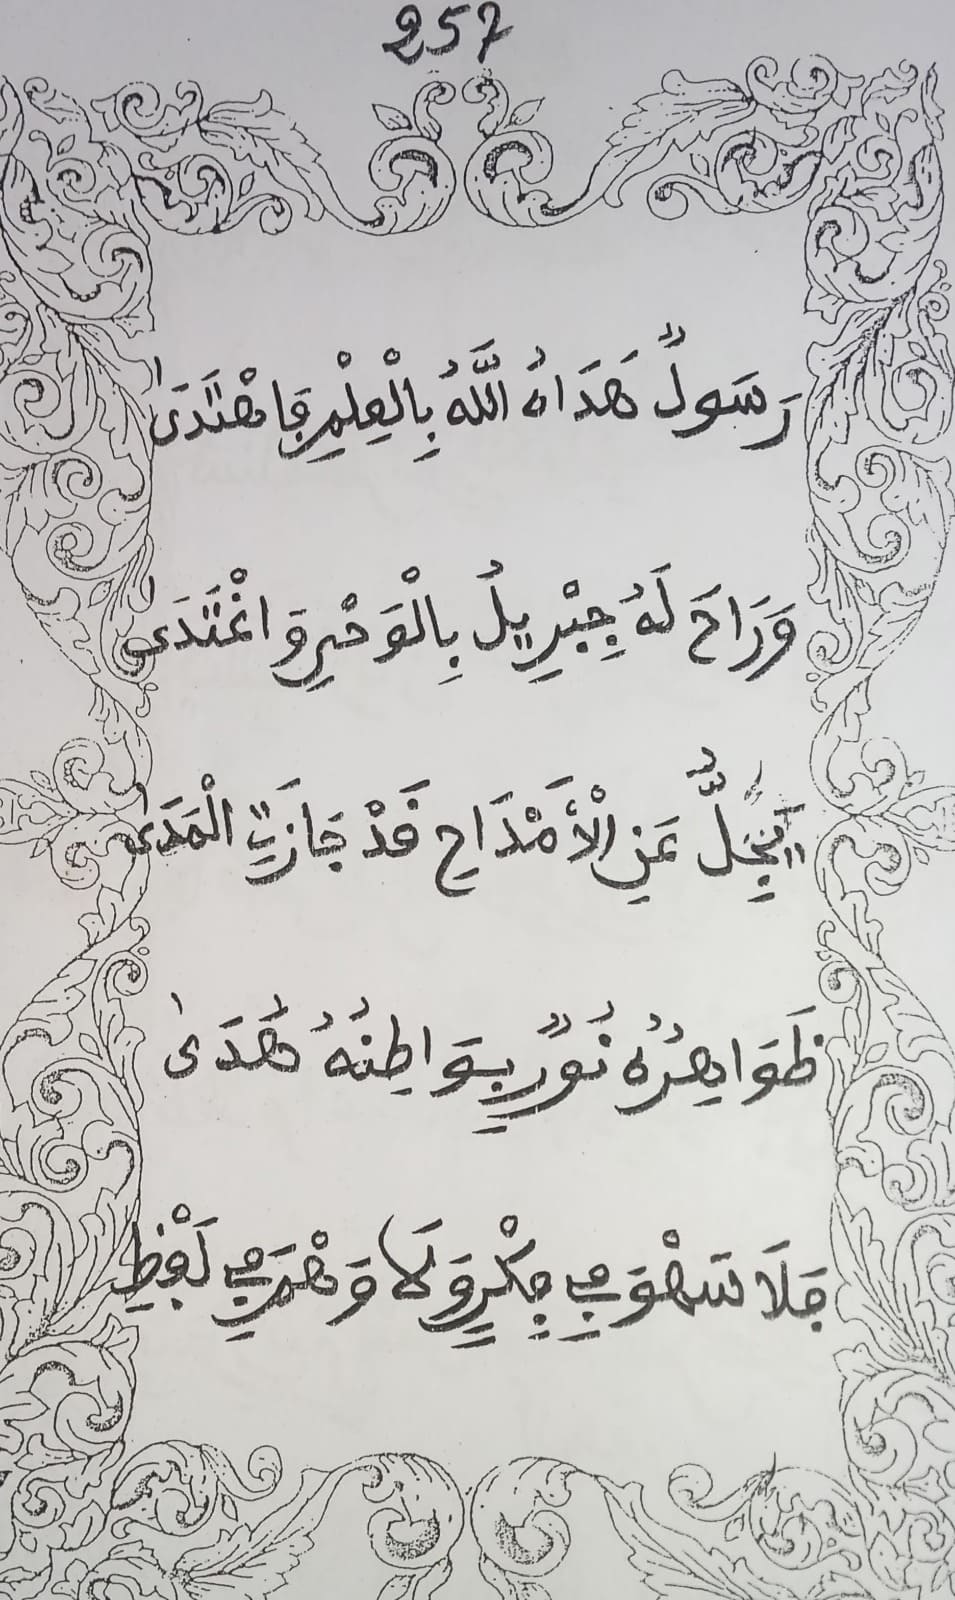 257
رَسُولٌ هَدَاهُ اللَّهُ بِالْعِلْمِ فَاهْتَدَى
وَرَاحَ لَهُ جِبْرِيلُ بِالْوَحْيِ وَاغْتَدَى
يَجِلُّ عَنِ الْأَمْدَاحِ قَدْ جَازَتِ الْمَدَى
ظَوَاهِرُهُ نُورٌ بَوَاطِنُهُ هُدَى
فَلَا سَهْوَ فِي فِكْرٍ وَلَا وَهْمَ فِي لَفْظِ